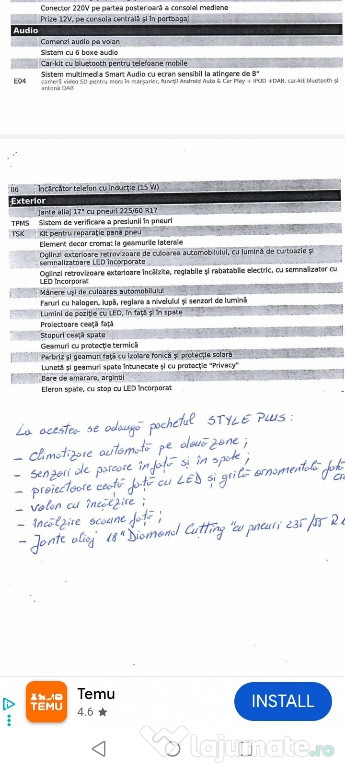 Conector 220V pe partea posterioară a consolei mediene
Prize 12V, pe consola centrală și în portbagaj
Audio
Comenzi audio pe volan
Sistem cu 6 boxe audio
Car-kit cu bluetooth pentru telefoane mobile
E04 Sistem multimedia Smart Audio cu ecran sensibil la atingere de 8"
cameră video SD pentru mers în marșarier, funcții Android Auto & Car Play + IPOD +DAB, car-kit bluetooth și
antenă DAB
06 Încărcător telefon cu inducție (15 W)
Exterior
Jante aliaj 17" cu pneuri 225/60 R17
TPMS Sistem de verificare a presiunii în pneuri
TSK Kit pentru reparație pană pneu
Element decor cromat la geamurile laterale
Oglinzi exterioare retrovizoare de culoarea automobilului, cu lumină de curtoazie și
semnalizatoare LED încorporate
Oglinzi retrovizoare exterioare încălzite, reglabile și rabatabile electric, cu semnalizator cu
LED încorporat
Mânere uși de culoarea automobilului
Faruri cu halogen, lupă, reglare a nivelului și senzori de lumină
Lumini de poziție cu LED, în față și în spate
Proiectoare ceață față
Stopuri ceață spate
Geamuri cu protecție termică
Parbriz și geamuri față cu izolare fonică și protecție solară
Lunetă și geamuri spate întunecate și cu protecție "Privacy"
Bare de amarare, argintii
Eleron spate, cu stop cu LED încorporat
La acestea se adaugă pachetul STYLE PLUS:
- climatizare automată pe două zone;
- senzori de parcare în față și în spate;
- proiectoare ceață față cu LED și grilă ornamentală față
- volan cu încălzire;
- încălzire scaune față;
- Jante aliaj 18" Diamond Cutting "cu pneuri 235/55 R
Temu
4.6 ★
INSTALL
TEMU
lajumate.ro